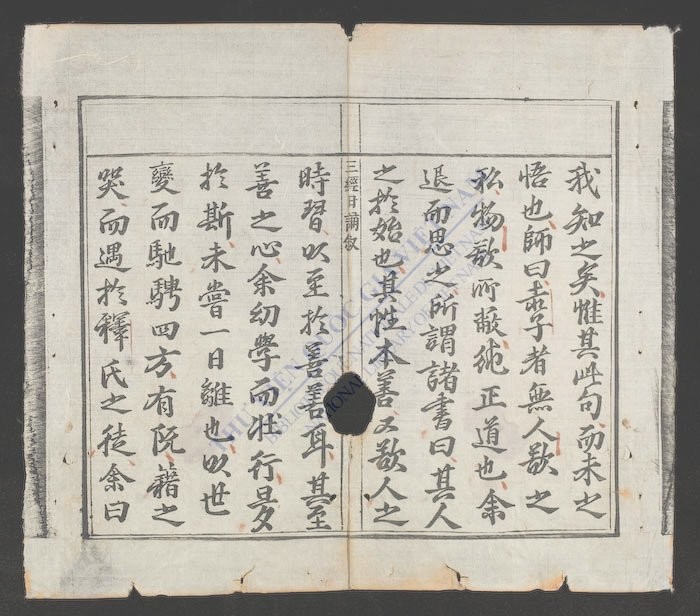 我知之矣惟其此句而未之
悟也師曰袁子者無人欲之
私物欲所蔽純正道也余
退而思之所謂諸書曰其人
之於始也其性本善又欲人之
三經日誦敘
時習以至於善善耳其至
善之心余幼學而壯行夢
於斯未嘗一日離也以世
變而馳騁四方有阮籍之
哭而遇於釋氏之徒余曰
THƯ VIỆN QUỐC GIA VIỆT NAM